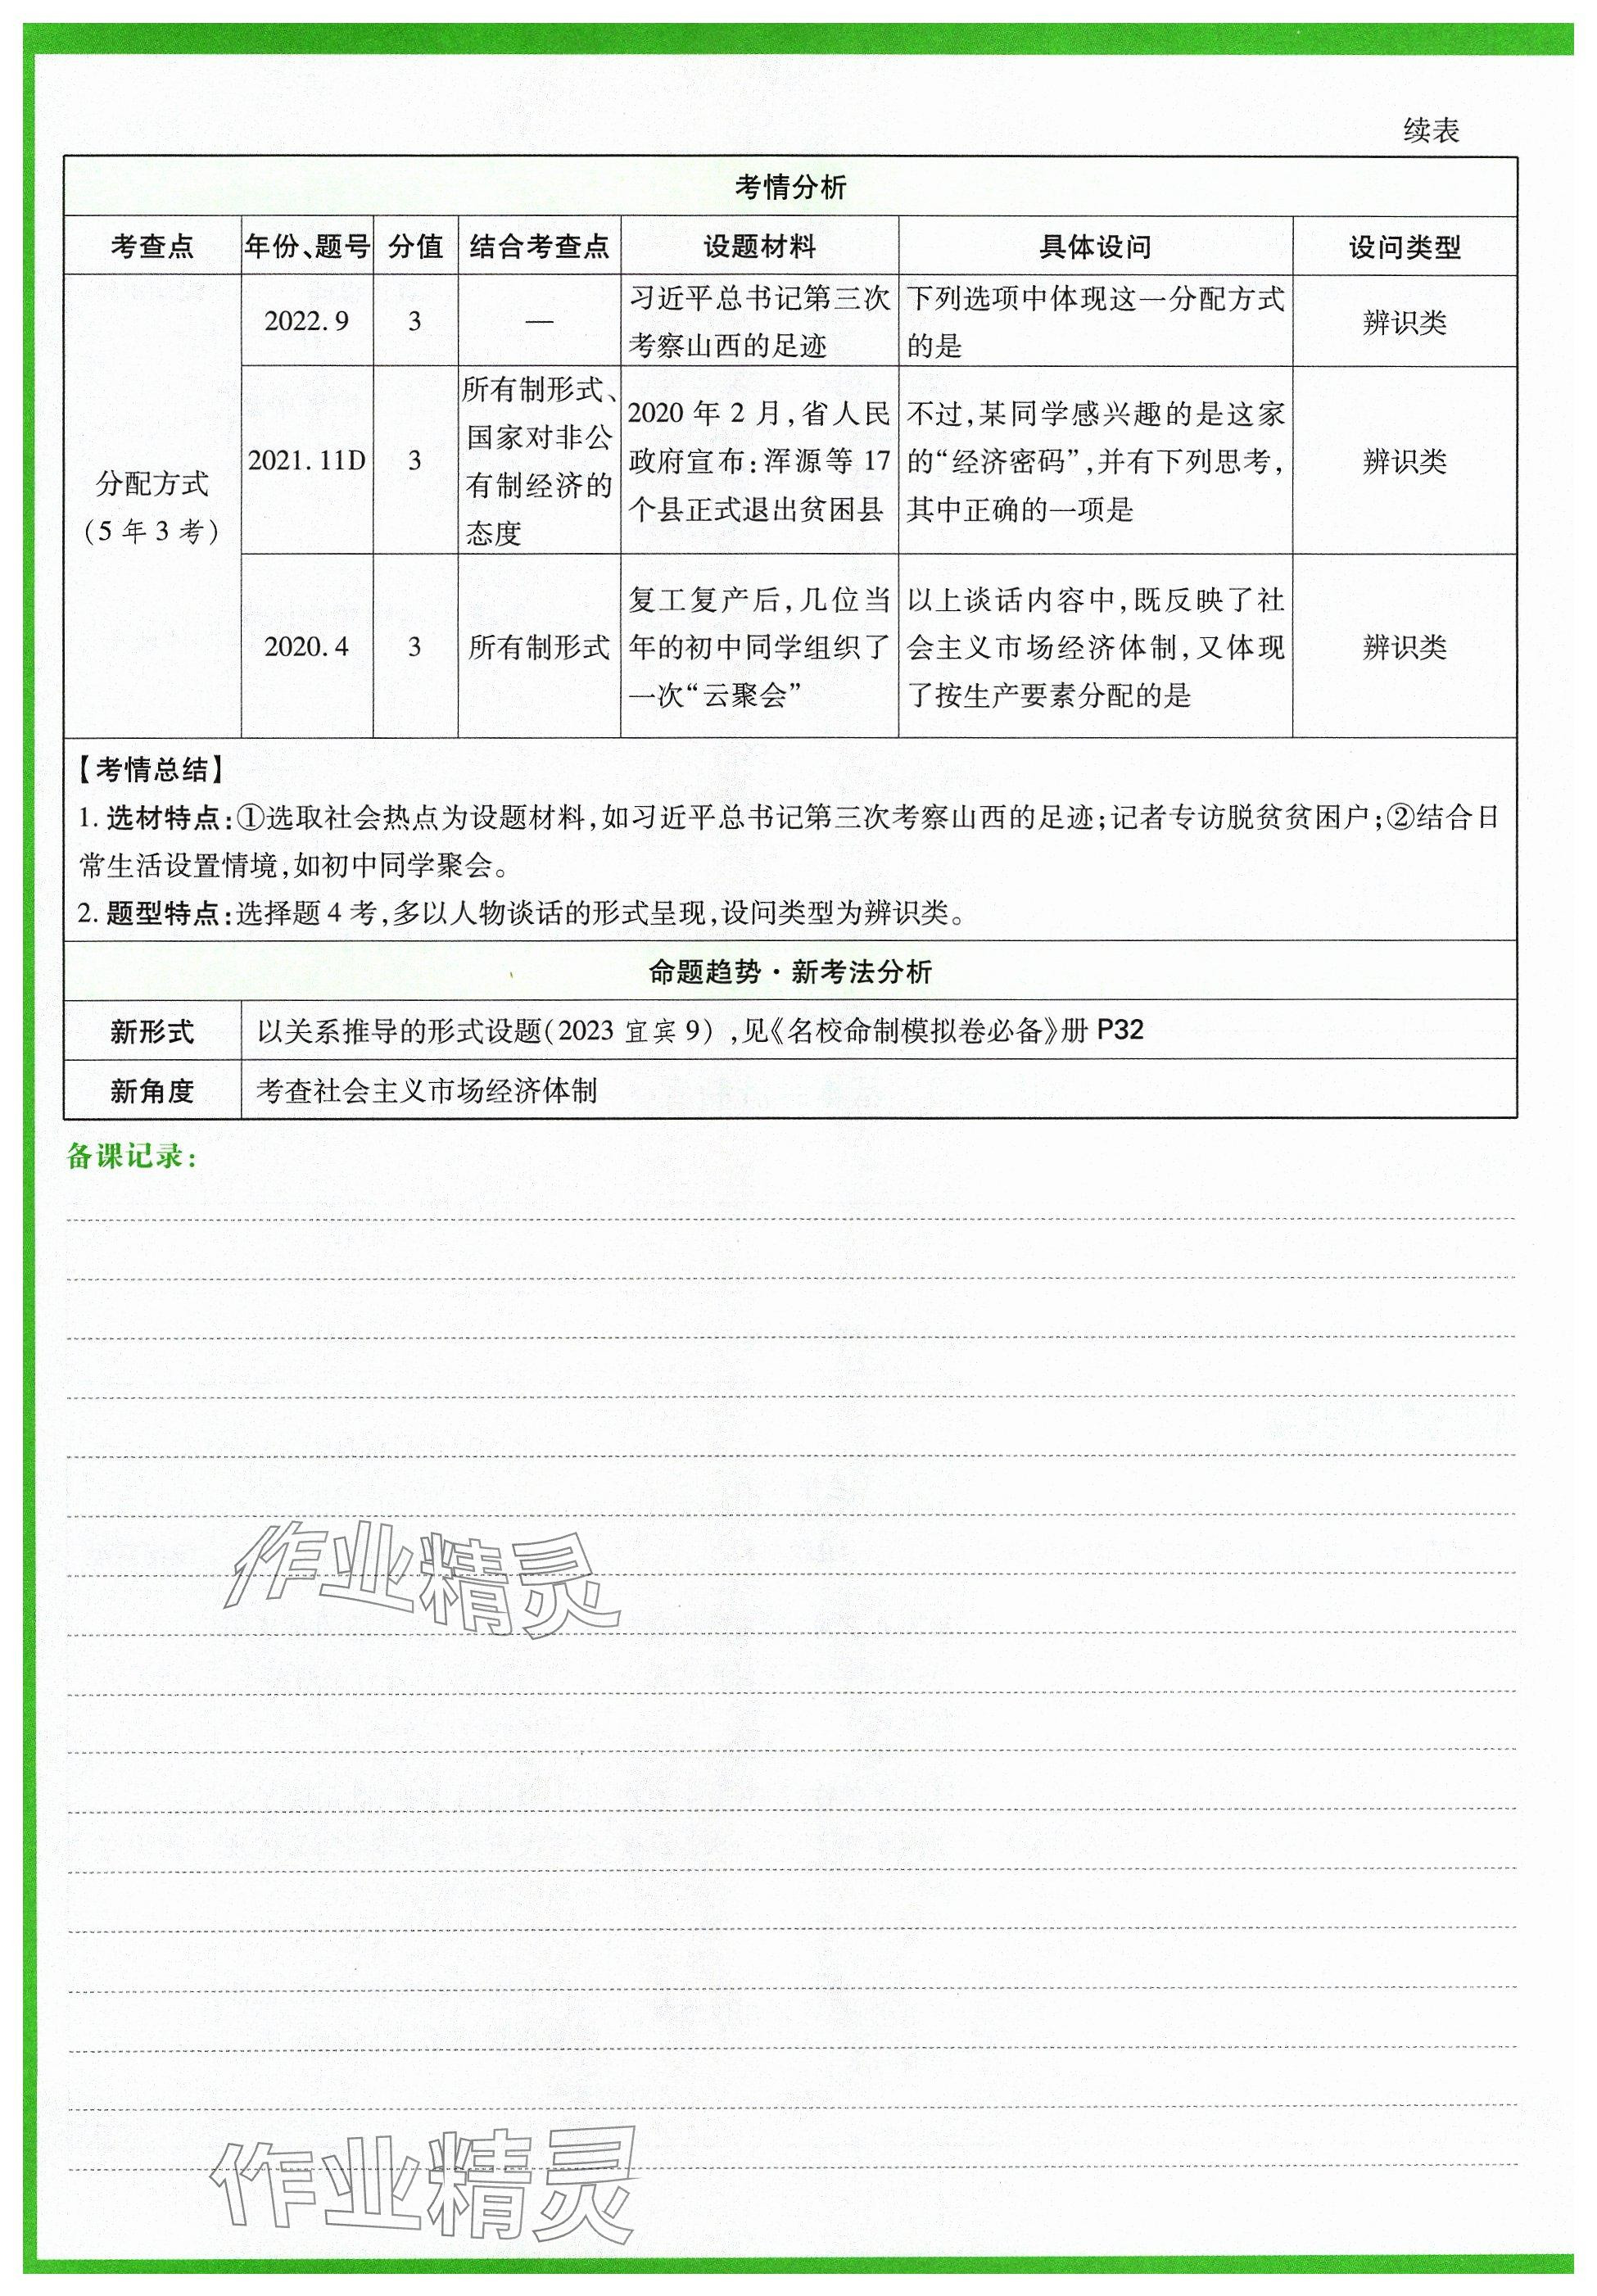 续表
考情分析
考查点 年份、题号 分值 结合考查点 设题材料 具体设问 设问类型
分配方式
(5 年 3 考)
2022. 9 3 — 习近平总书记第三次 下列选项中体现这一分配方式 辨识类
考察山西的足迹 的是
所有制形式、
国家对非公
有制经济的
态度
2021. 11D 3
2020 年 2 月,省人民
政府宣布:浑源等 17
个县正式退出贫困县
不过,某同学感兴趣的是这家
的“经济密码”,并有下列思考,
其中正确的一项是
辨识类
2020. 4 3 所有制形式
复工复产后,几位当
年的初中同学组织了
一次“云聚会”
以上谈话内容中,既反映了社
会主义市场经济体制,又体现
了按生产要素分配的是
辨识类
【考情总结】
1. 选材特点:①选取社会热点为设题材料,如习近平总书记第三次考察山西的足迹;记者专访脱贫贫困户;②结合日
常生活设置情境,如初中同学聚会。
2. 题型特点:选择题 4 考,多以人物谈话的形式呈现,设问类型为辨识类。
命题趋势·新考法分析
新形式 以关系推导的形式设题(2023 宜宾 9) ,见《名校命制模拟卷必备》册 P32
新角度 考查社会主义市场经济体制
备课记录:
作业精灵
作业精灵